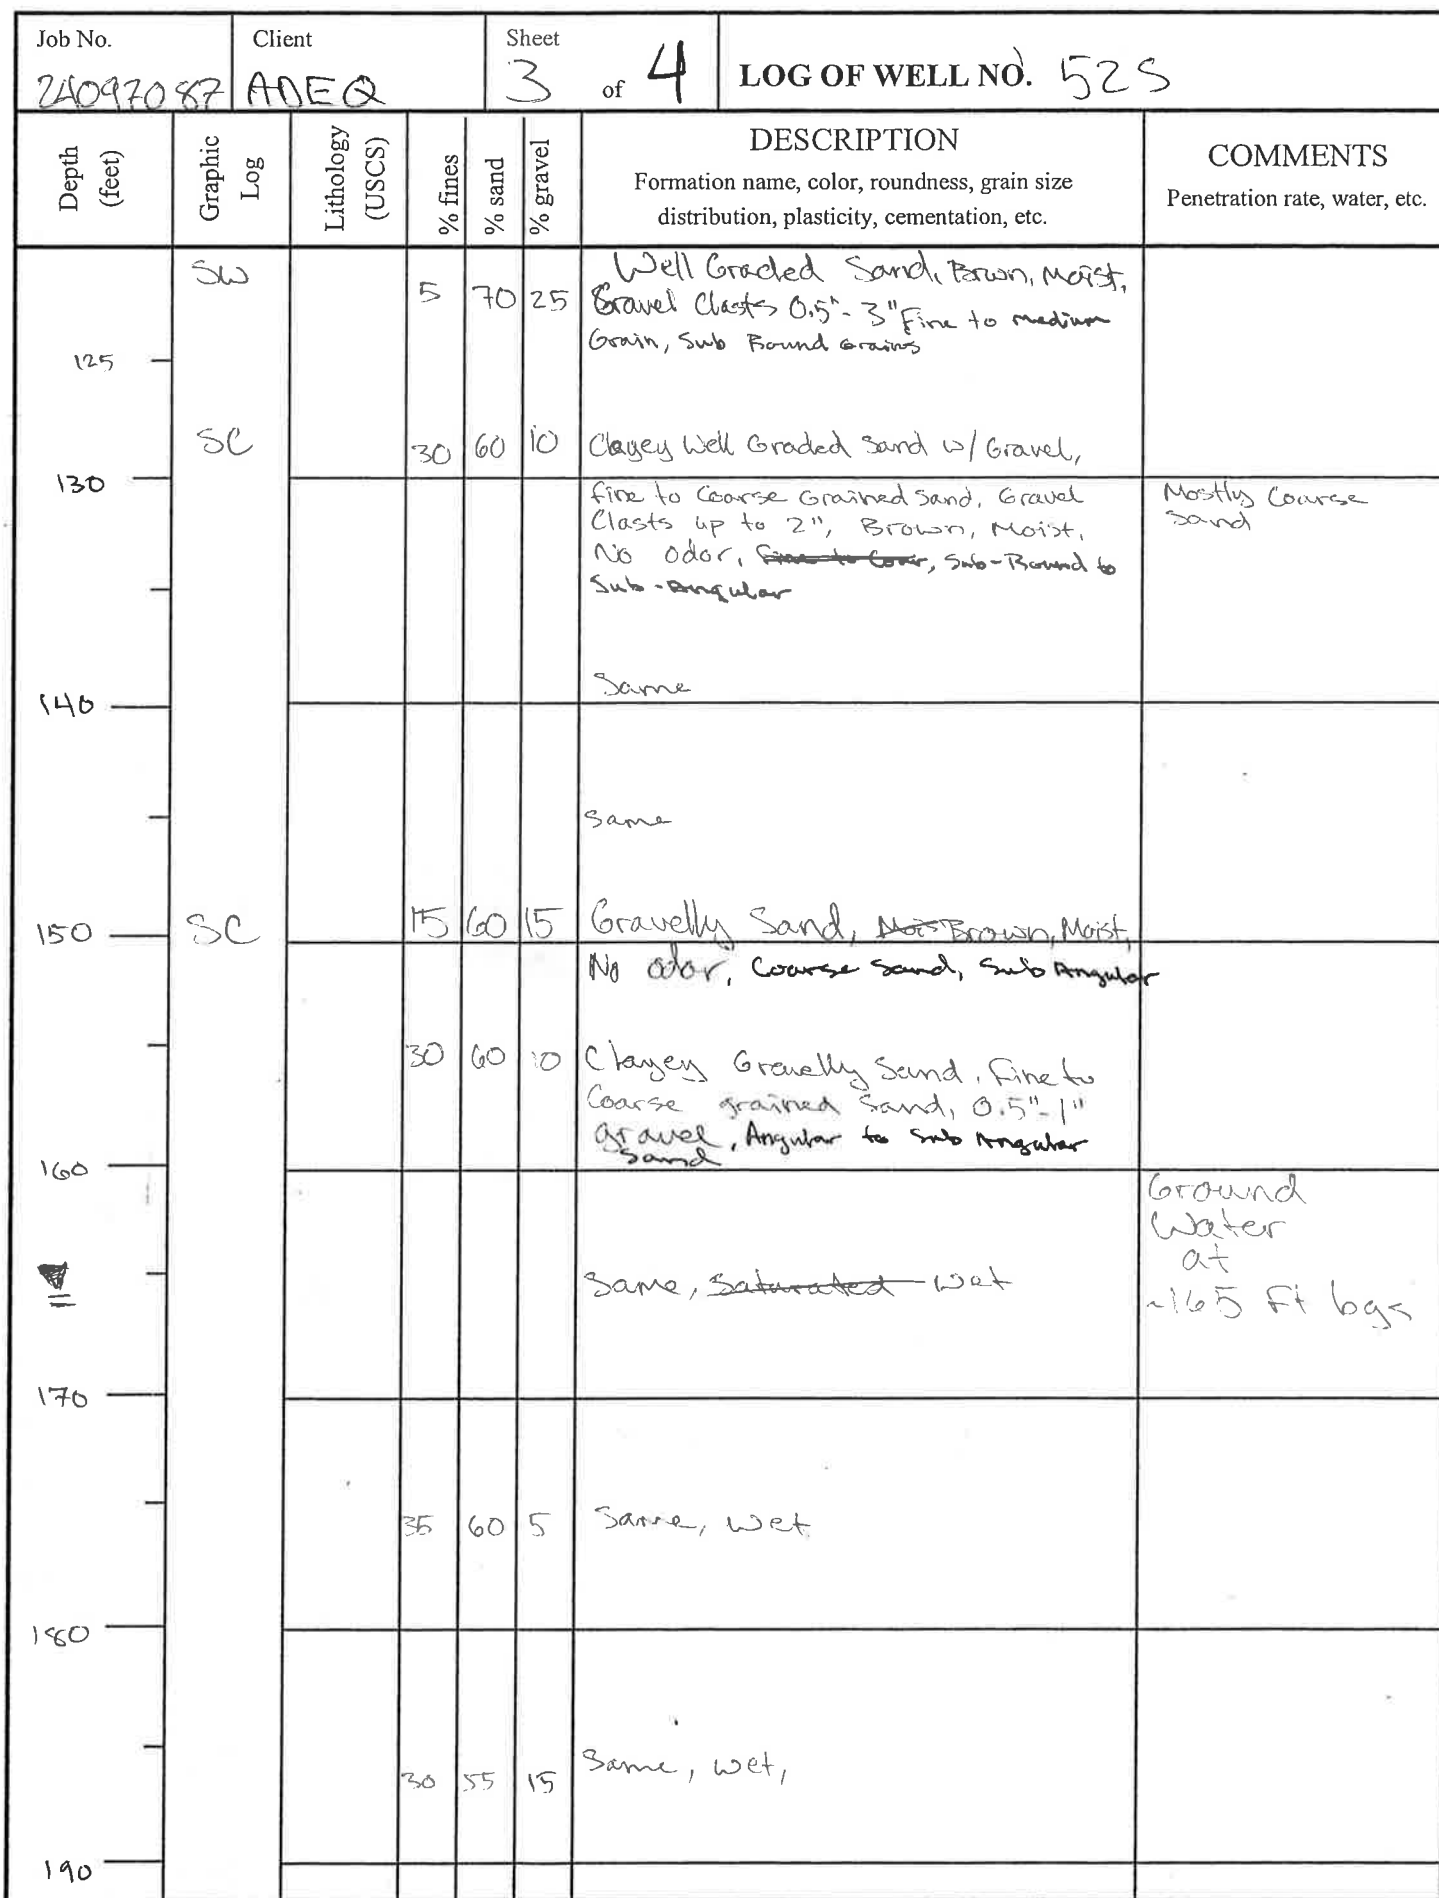 Job No.
24097087
Client
ADEQ
Sheet
3 of 4
LOG OF WELL NO. 52S
Depth
(feet)
Graphic
Log
Lithology
(USCS)
% fines
% sand
% gravel
DESCRIPTION
Formation name, color, roundness, grain size
distribution, plasticity, cementation, etc.
COMMENTS
Penetration rate, water, etc.
SW
5 70 25
Well Graded Sand, Brown, Moist,
Gravel Clasts 0.5"- 3" Fine to medium
Grain, Sub Round Grains
125
SC
30 60 10
Clayey Well Graded Sand w/ Gravel,
130
fine to Coarse Grained Sand, Gravel
Clasts up to 2", Brown, Moist,
No odor, Sub-Round to
Sub-Angular
Mostly Coarse
Sand
Same
140
Same
150
SC
15 60 15
Gravelly Sand, Brown, Moist,
No odor, Coarse Sand, Sub Angular
30 60 10
Clayey Gravelly Sand, Fine to
Coarse grained Sand, 0.5"-1"
gravel, Angular to Sub Angular
Sand
160
Ground
Water
at
~165 Ft bgs
Same, Saturated Wet
170
35 60 5
Same, Wet
180
30 55 15
Same, Wet,
190